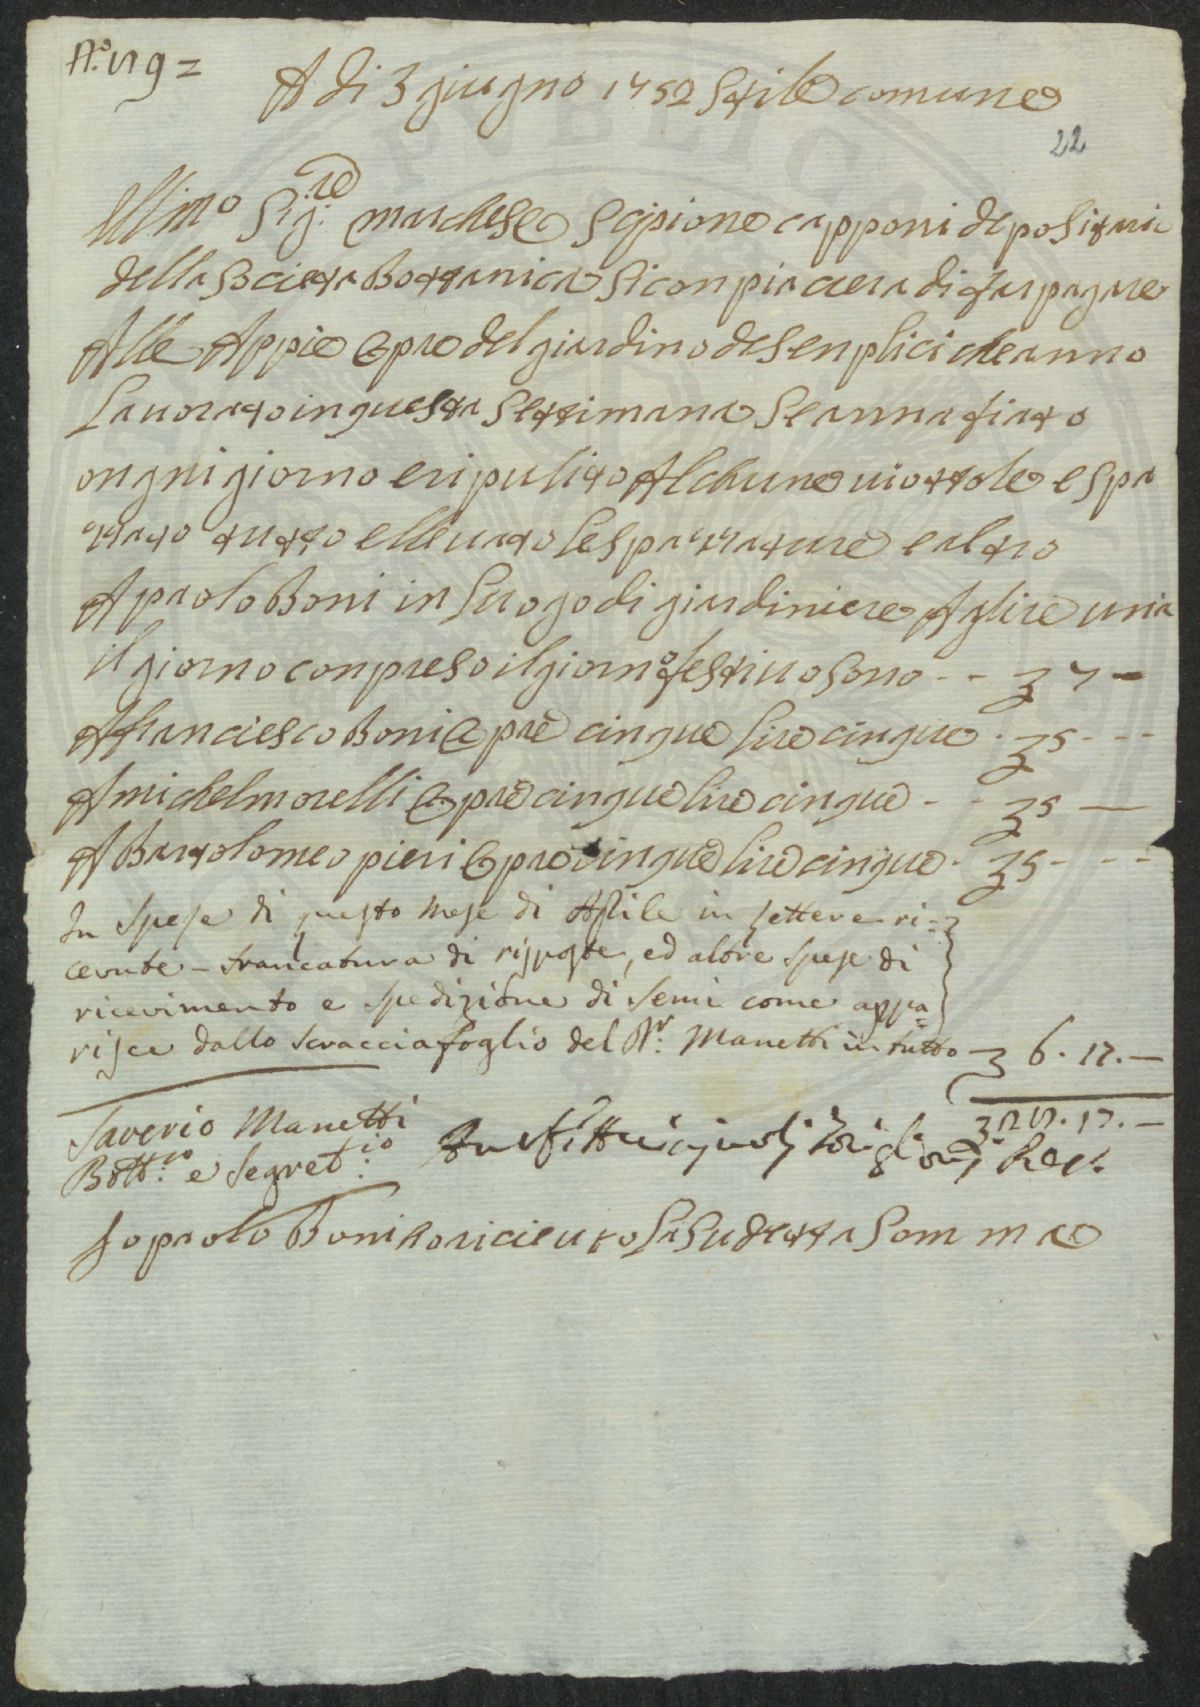 N.º 19 =
A di 3 giugno 1752 Stile comune
22
Illmo Sig.re marchese Scipione capponi depositario
della Societa Bottanica Si conpiaciera di far pagare
Alle Appie Opre del giardino de Senplici che anno
Lauorato in questa Settimana Se annafiato
ongni giorno e ripulito Alchune uiottole e spa
zzato tutto e lleuato le spazzature e altro
A paolo Boni in Luogo di giardiniere A lire una
il giorno conpreso il giorno festiuo sono - - £ 7 -
A franciesco Boni Opre cinque lire cinque - £ 5 - - -
A michel morelli Opre cinque lire cinque - - £ 5 —
A Bartolomeo pieri Opre cinque lire cinque - £ 5 - - -
In Spese di questo Mese di Aprile in Lettere ri=
cevute - francatura di risposte, ed altre spese di
ricevimento e spedizione di Semi come appa=
risce dallo scracciafoglio del Dr. Manetti in tutto — £ 6. 17. —
£ 28. 17. —
Saverio Manetti
Bott.co e Segret.rio
Io paolo Boni o riceuto La Sudetta Somma